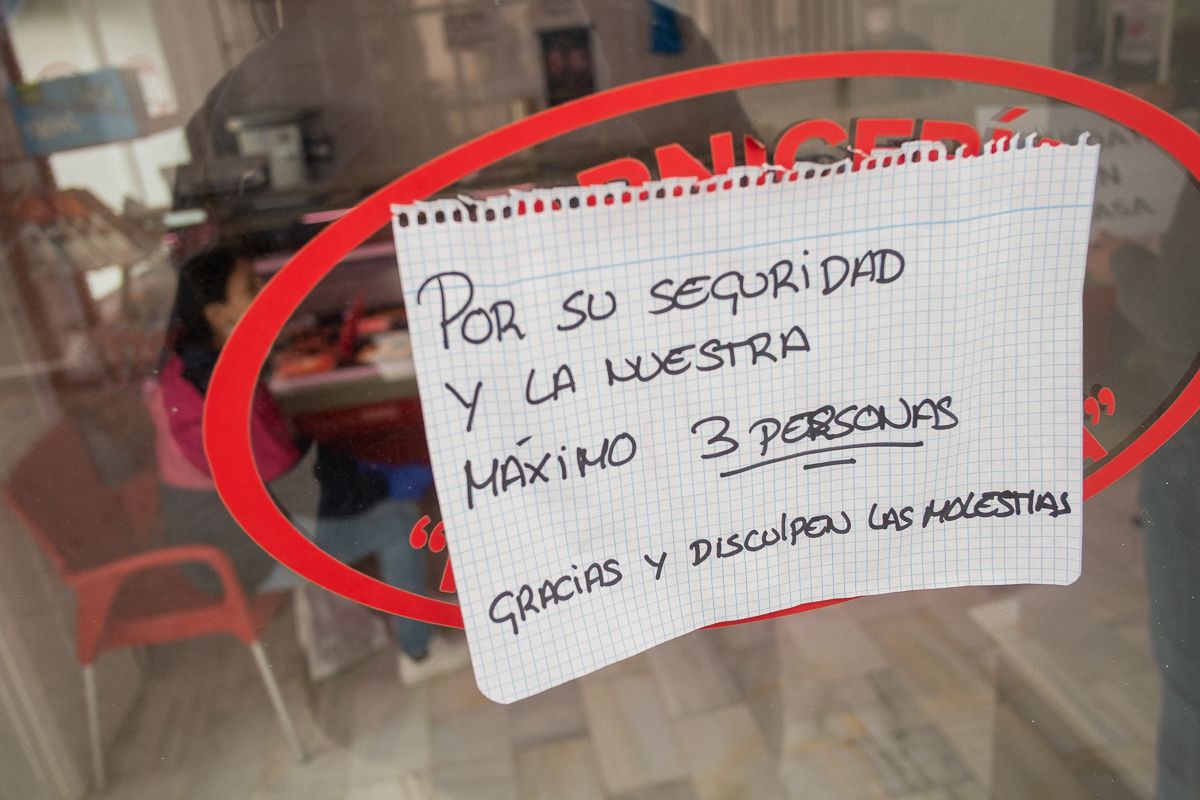 RNICERÍ
POR SU SEGURIDAD
Y LA NUESTRA
MÁXIMO 3 PERSONAS
GRACIAS Y DISCULPEN LAS MOLESTIAS